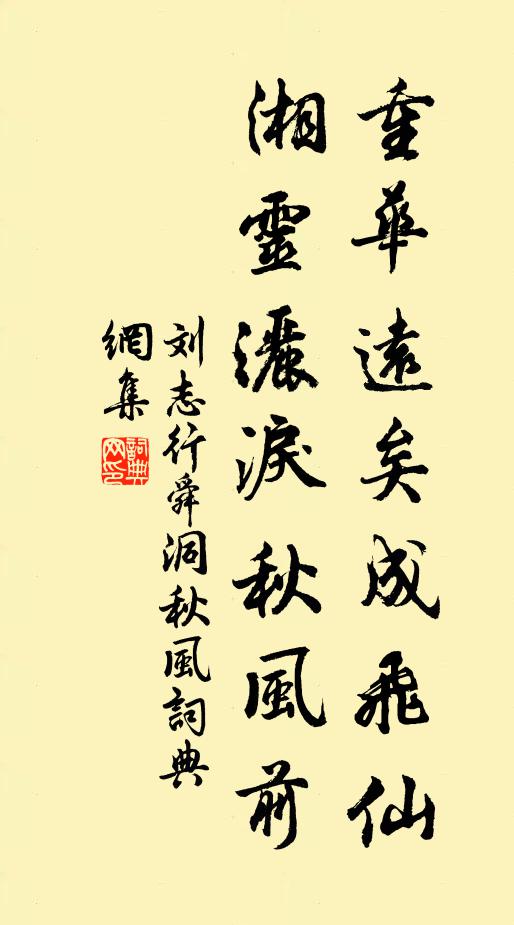 重華遠矣成飛仙
湘靈灑淚秋風前
刘志行舜洞秋風詞典
網集
詞典网印